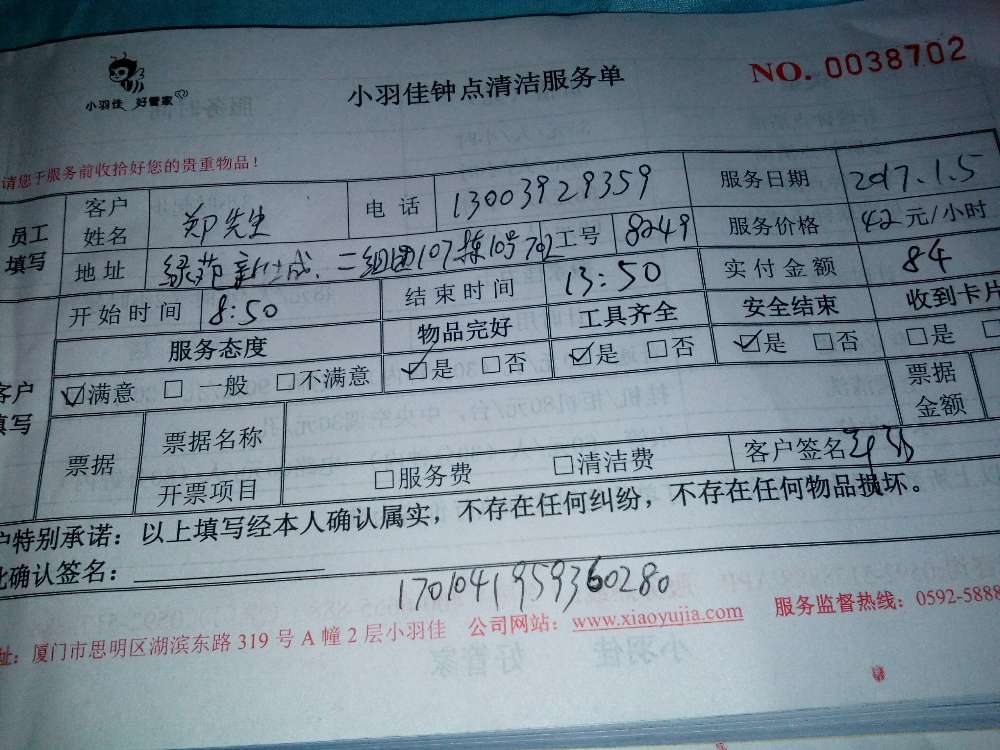 小羽佳 好管家
小羽佳钟点清洁服务单
NO. 0038702
请您于服务前收拾好您的贵重物品！
员工填写
客户姓名 郑先生 电话 13003929359 服务日期 2017.1.5
地址 绿苑新 二组团107栋10号702 工号 8249 服务价格 42元/小时
开始时间 8:50 结束时间 13:50 实付金额 84
客户填写
服务态度 物品完好 工具齐全 安全结束 收到卡片
☑满意 □一般 □不满意 ☑是 □否 ☑是 □否 ☑是 □否 □是 □
票据 票据名称 票据金额
开票项目 □服务费 □清洁费 客户签名
户特别承诺：以上填写经本人确认属实，不存在任何纠纷，不存在任何物品损坏。
此确认签名：
1701041959360280
址：厦门市思明区湖滨东路319号A幢2层小羽佳 公司网站：www.xiaoyujia.com 服务监督热线：0592-5888